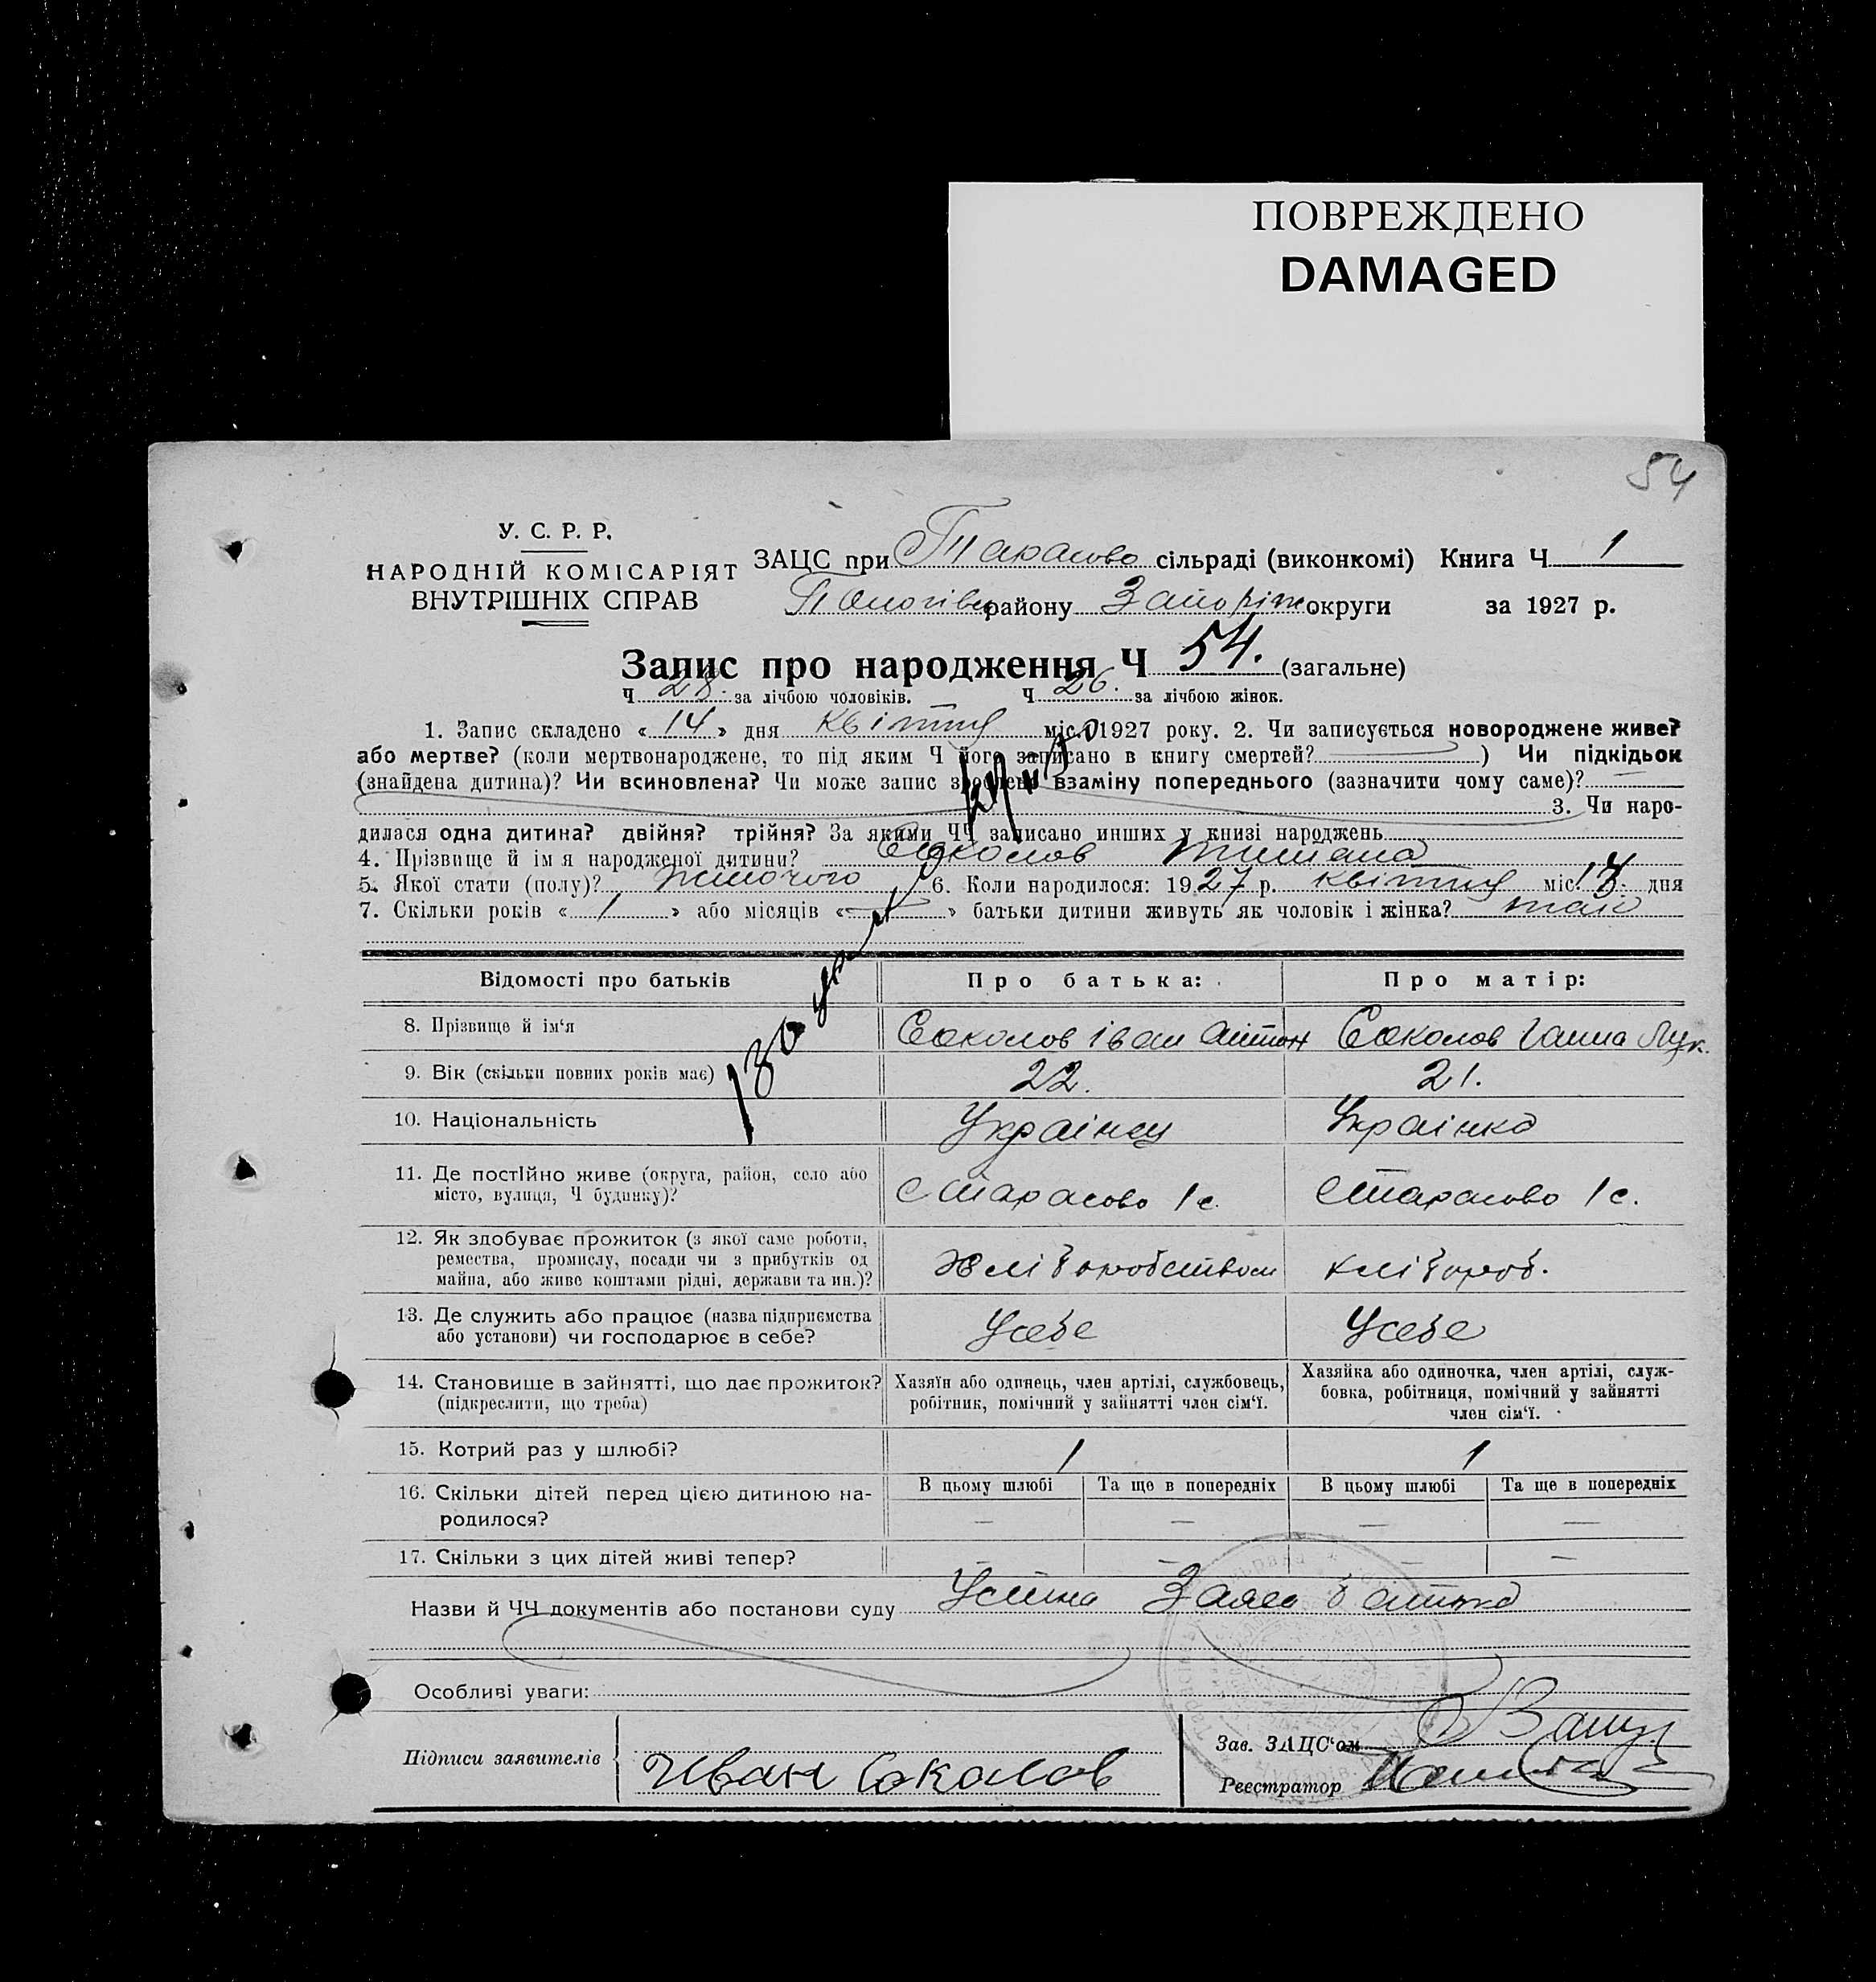 ПОВРЕЖДЕНО
DAMAGED
54
У. С. Р. Р.
НАРОДНІЙ КОМІСАРІЯТ
ВНУТРІШНІХ СПРАВ
ЗАЦС при Тарасово сільраді (виконкомі) Книга Ч 1
району Запоріж округи за 1927 р.
Запис про народження Ч 54. (загальне)
Ч 28. за лічбою чоловіків. Ч 26. за лічбою жінок.
1. Запис складено « 14 » дня квітня міс. 1927 року. 2. Чи записується новороджене живе?
або мертве? (коли мертвонароджене, то під яким Ч його записано в книгу смертей? ) Чи підкідьок
(знайдена дитина)? Чи всиновлена? Чи може запис зроблено взаміну попереднього (зазначити чому саме)?
3. Чи наро-
дилася одна дитина? двійня? трійня? За якими ЧЧ записано инших у книзі народжень
4. Прізвище й ім я народженої дитини? Соколов
5. Якої стати (полу)? жіночого 6. Коли народилося: 1927 р. квітня міс. дня
7. Скільки років « 1 » або місяців « — » батьки дитини живуть як чоловік і жінка? так
Відомості про батьків
Про батька:
Про матір:
8. Прізвище й ім'я
Соколов Іван Антон
Соколов Ганна Лук.
9. Вік (скільки повних років має)
22.
21.
10. Національність
Українец
Українка
11. Де постійно живе (округа, район, село або
місто, вулиця, Ч будинку)?
с Тарасово 1 с.
с Тарасово 1 с.
12. Як здобуває прожиток (з якої саме роботи,
ремества, промислу, посади чи з прибутків од
майна, або живе коштами рідні, держави та ин.)?
хліборобством
хлібороб.
13. Де служить або працює (назва підприємства
або установи) чи господарює в себе?
Усебе
Усебе
14. Становище в зайнятті, що дає прожиток?
(підкреслити, що треба)
Хазяїн або одинець, член артілі, службовець,
робітник, помічний у зайнятті член сім'ї.
Хазяйка або одиночка, член артілі, служ-
бовка, робітниця, помічний у зайнятті
член сім'ї.
15. Котрий раз у шлюбі?
1
1
16. Скільки дітей перед цією дитиною на-
родилося?
В цьому шлюбі
Та ще в попередніх
В цьому шлюбі
Та ще в попередніх
— — — —
17. Скільки з цих дітей живі тепер?
— — — —
Назви й ЧЧ документів або постанови суду Устна Заява батька
Особливі уваги:
Підписи заявителів
Иван Соколов
Зав. ЗАЦС'ом
Реєстратор